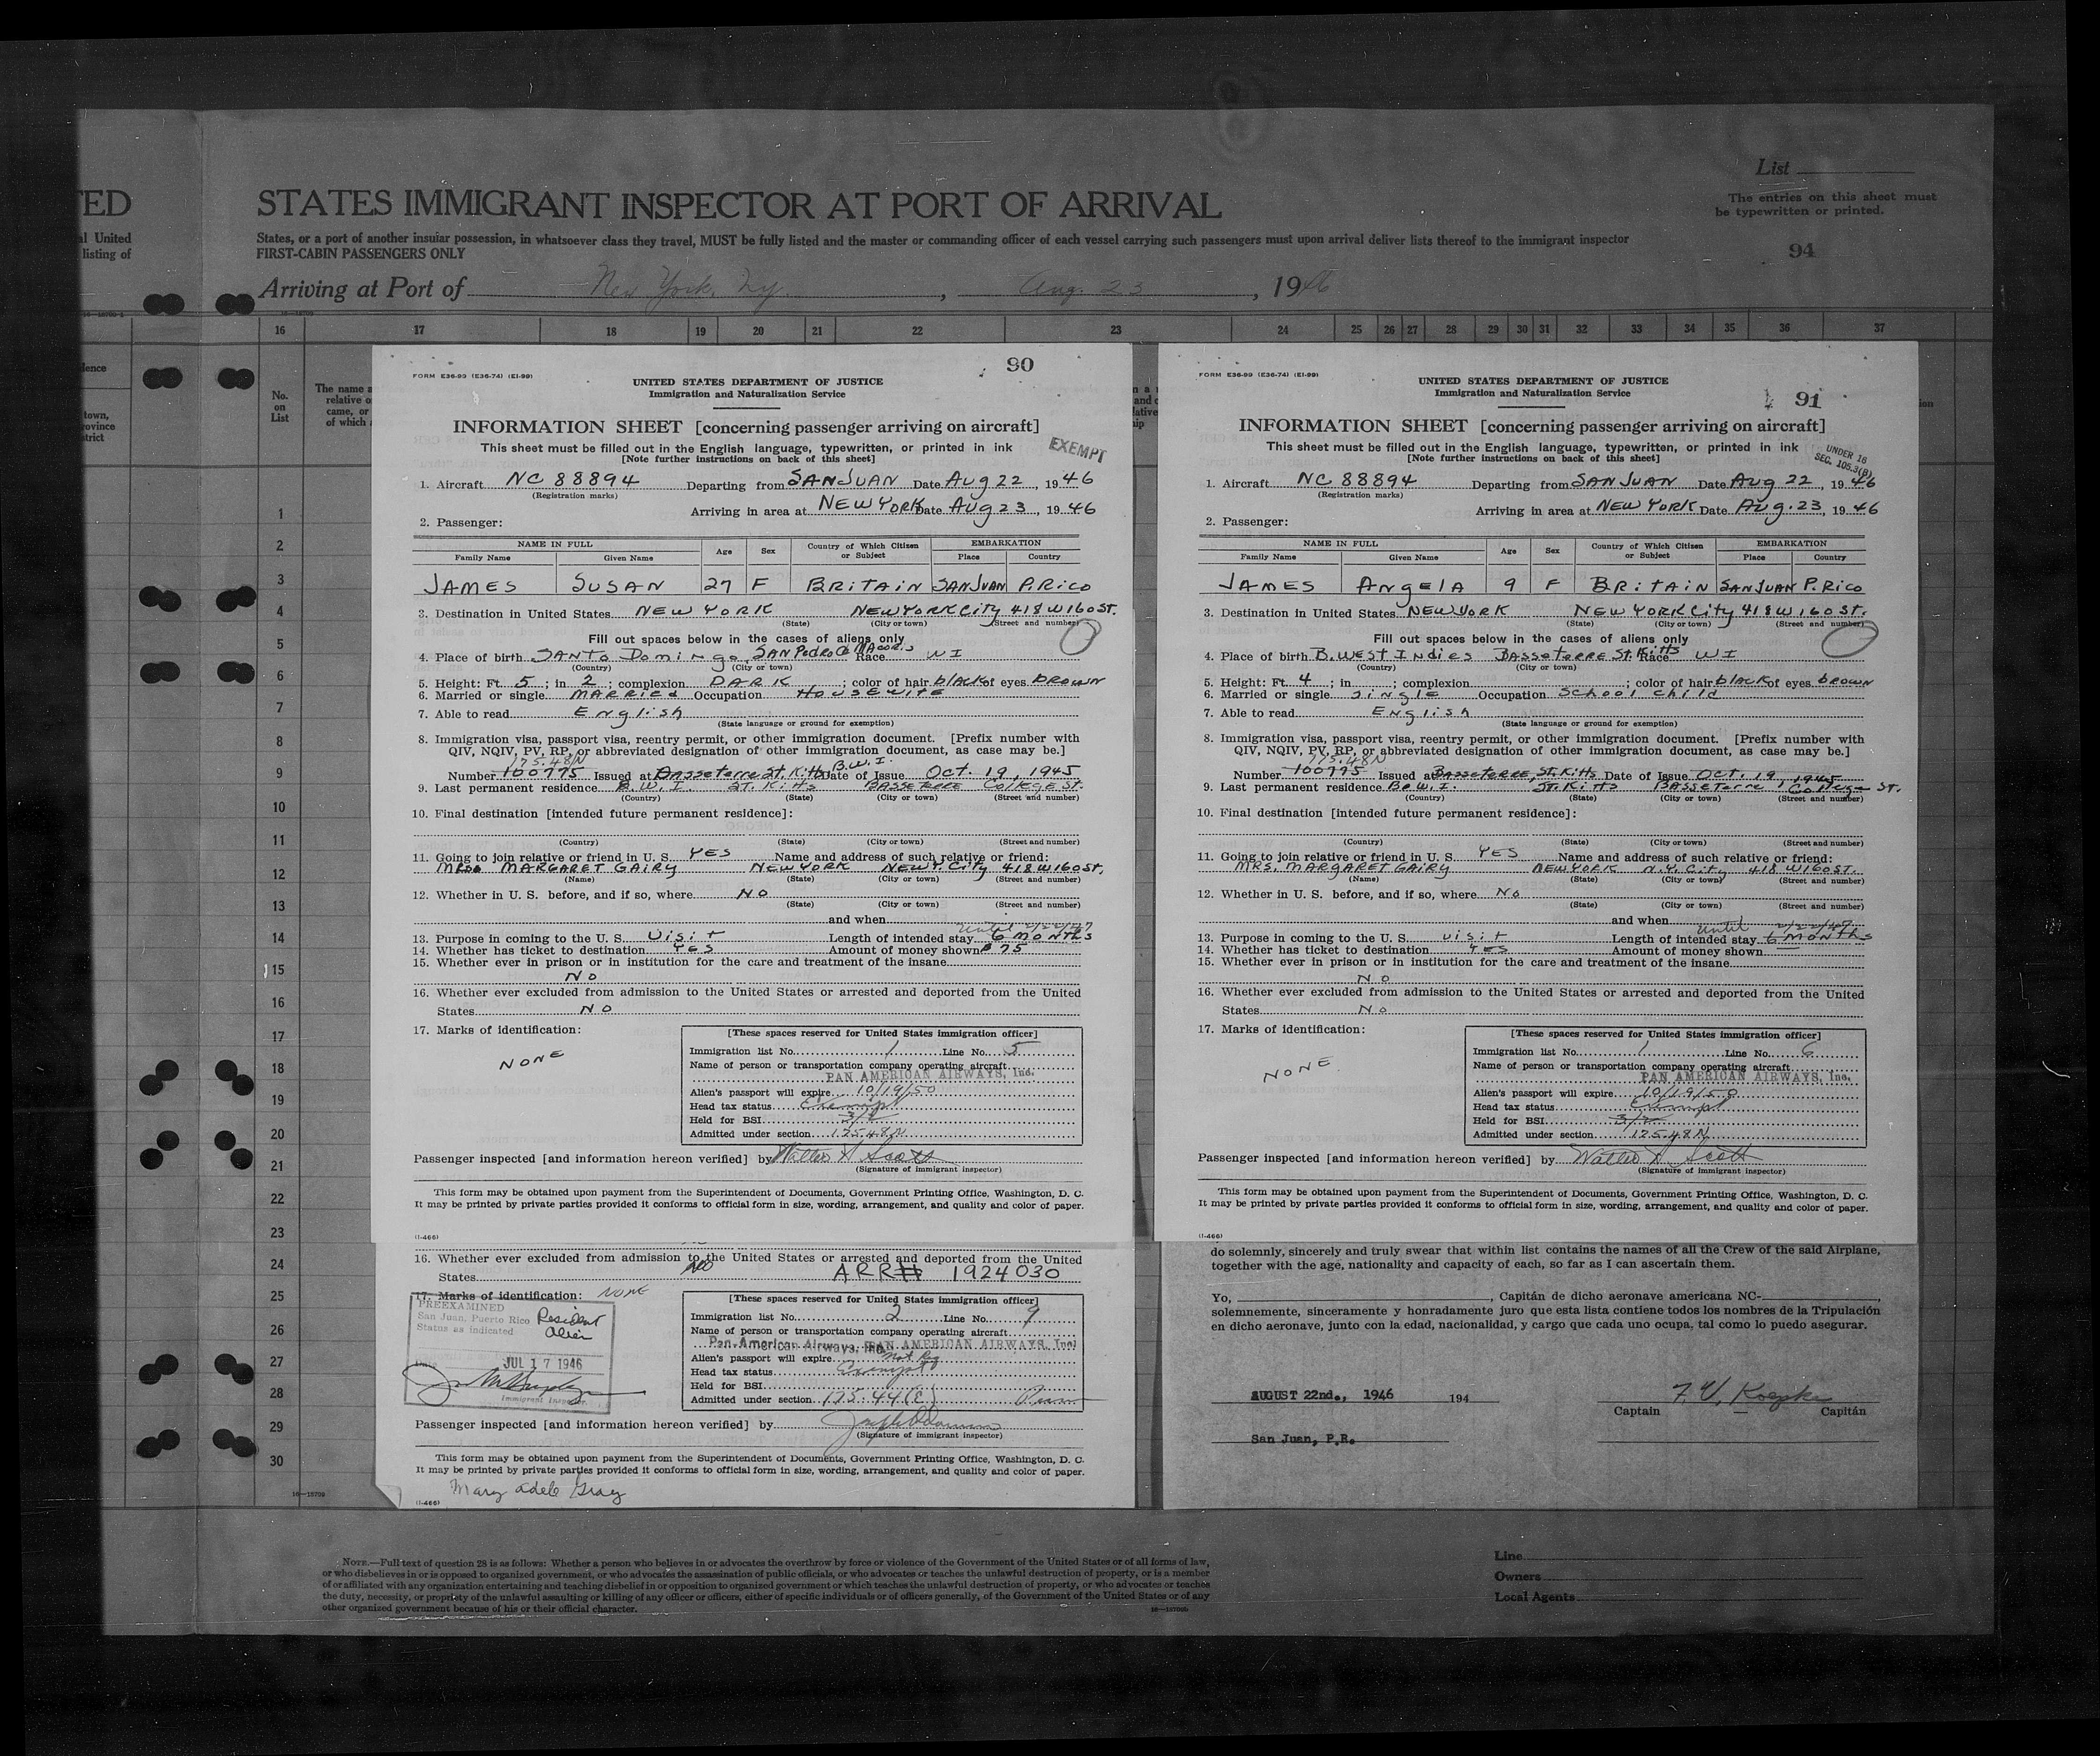 TED
al United
listing of
STATES IMMIGRANT INSPECTOR AT PORT OF ARRIVAL
States, or a port of another insular possession, in whatsoever class they travel, MUST be fully listed and the master or commanding officer of each vessel carrying such passengers must upon arrival deliver lists thereof to the immigrant inspector
FIRST-CABIN PASSENGERS ONLY
List
The entries on this sheet must
be typewritten or printed.
94
Arriving at Port of New York, Ny. , Aug. 23 , 1946
16 17 18 19 20 21 22 23 24 25 26 27 28 29 30 31 32 33 34 35 36 37
No.
on
List
The name a
relative o
came, or
of which
1
2
3
4
5
6
7
8
9
10
11
12
13
14
15
16
17
18
19
20
21
22
23
24
25
26
27
28
29
30
90
FORM E36-99 (E36-74) (EI-99)
UNITED STATES DEPARTMENT OF JUSTICE
Immigration and Naturalization Service
INFORMATION SHEET [concerning passenger arriving on aircraft]
This sheet must be filled out in the English language, typewritten, or printed in ink
[Note further instructions on back of this sheet]
EXEMPT
1. Aircraft NC 88894 Departing from SAN JUAN Date Aug 22, 1946
(Registration marks)
Arriving in area at NEW YORK Date Aug 23, 19 46
2. Passenger:
NAME IN FULL Age Sex Country of Which Citizen or Subject EMBARKATION
Family Name Given Name Place Country
JAMES SUSAN 27 F BRITAIN SAN JUAN P.RICO
3. Destination in United States NEW YORK NEW YORK City 418 W 160 ST.
(State) (City or town) (Street and number)
Fill out spaces below in the cases of aliens only
4. Place of birth SANTO Domingo, SAN Pedro De Macoris Race WI
(Country) (City or town)
5. Height: Ft. 5; in 2; complexion DARK; color of hair black of eyes BROWN
6. Married or single MARRIED Occupation HOUSEWIFE
7. Able to read English
(State language or ground for exemption)
8. Immigration visa, passport visa, reentry permit, or other immigration document. [Prefix number with
QIV, NQIV, PV, RP, or abbreviated designation of other immigration document, as case may be.]
175.48N
Number 100775 Issued at Basseterre St. Kitts B.W.I. Date of Issue Oct. 19, 1945
9. Last permanent residence B.W.I. ST. Kitts BASSETERRE College ST.
(Country) (State) (City or town) (Street and number)
10. Final destination [intended future permanent residence]:
(Country) (State) (City or town) (Street and number)
11. Going to join relative or friend in U. S. YES Name and address of such relative or friend:
MRS. MARGARET GAIRY NEW YORK NEW Y. City 418 W 160 ST.
(Name) (State) (City or town) (Street and number)
12. Whether in U. S. before, and if so, where NO
(State) (City or town) (Street and number)
and when
Until
13. Purpose in coming to the U. S. Visit Length of intended stay 6 MONTHS
14. Whether has ticket to destination YES Amount of money shown $ 75
15. Whether ever in prison or in institution for the care and treatment of the insane
NO
16. Whether ever excluded from admission to the United States or arrested and deported from the United
States NO
17. Marks of identification:
NONE
[These spaces reserved for United States immigration officer]
Immigration list No. 1 Line No. 5
Name of person or transportation company operating aircraft
PAN AMERICAN AIRWAYS, Inc.
Alien's passport will expire 10/19/50
Head tax status Exempt
Held for BSI
Admitted under section 175.48N
Passenger inspected [and information hereon verified] by Walter A Scott
(Signature of immigrant inspector)
This form may be obtained upon payment from the Superintendent of Documents, Government Printing Office, Washington, D. C.
It may be printed by private parties provided it conforms to official form in size, wording, arrangement, and quality and color of paper.
(I-466)
16. Whether ever excluded from admission to the United States or arrested and deported from the United
States No ARR# 1924030
17. Marks of identification: NONE
PREEXAMINED
San Juan, Puerto Rico
Status as indicated
Resident
Alien
JUL 17 1946
Immigrant Inspector
[These spaces reserved for United States immigration officer]
Immigration list No. 2 Line No. 9
Name of person or transportation company operating aircraft
Pan-American Airways, Inc. PAN AMERICAN AIRWAYS, Inc.
Alien's passport will expire Not Req
Head tax status Exempt
Held for BSI
Admitted under section 175.44(E)
Passenger inspected [and information hereon verified] by
(Signature of immigrant inspector)
This form may be obtained upon payment from the Superintendent of Documents, Government Printing Office, Washington, D. C.
It may be printed by private parties provided it conforms to official form in size, wording, arrangement, and quality and color of paper.
Mary Adele Gray
(I-466)
91
FORM E36-99 (E36-74) (EI-99)
UNITED STATES DEPARTMENT OF JUSTICE
Immigration and Naturalization Service
INFORMATION SHEET [concerning passenger arriving on aircraft]
This sheet must be filled out in the English language, typewritten, or printed in ink
[Note further instructions on back of this sheet]
UNDER 16
SEC. 105.3(B)
1. Aircraft NC 88894 Departing from SAN JUAN Date Aug 22, 1946
(Registration marks)
Arriving in area at NEW YORK Date Aug. 23, 19 46
2. Passenger:
NAME IN FULL Age Sex Country of Which Citizen or Subject EMBARKATION
Family Name Given Name Place Country
JAMES Angela 9 F BRITAIN SAN JUAN P.RICO
3. Destination in United States NEW YORK NEW YORK City 418 W 160 ST.
(State) (City or town) (Street and number)
Fill out spaces below in the cases of aliens only
4. Place of birth B. WEST Indies Basseterre St. Kitts Race WI
(Country) (City or town)
5. Height: Ft. 4; in ; complexion ; color of hair black of eyes brown
6. Married or single Single Occupation School child
7. Able to read English
(State language or ground for exemption)
8. Immigration visa, passport visa, reentry permit, or other immigration document. [Prefix number with
QIV, NQIV, PV, RP, or abbreviated designation of other immigration document, as case may be.]
175.48N
Number 100775 Issued at Basseterre, St. Kitts Date of Issue Oct. 19, 1945
9. Last permanent residence B.W.I. ST. Kitts Basseterre College ST.
(Country) (State) (City or town) (Street and number)
10. Final destination [intended future permanent residence]:
(Country) (State) (City or town) (Street and number)
11. Going to join relative or friend in U. S. YES Name and address of such relative or friend:
MRS. MARGARET GAIRY NEW YORK N.Y. City 418 W 160 ST.
(Name) (State) (City or town) (Street and number)
12. Whether in U. S. before, and if so, where No
(State) (City or town) (Street and number)
and when
Until
13. Purpose in coming to the U. S. visit Length of intended stay 6 months
14. Whether has ticket to destination YES Amount of money shown
15. Whether ever in prison or in institution for the care and treatment of the insane
NO
16. Whether ever excluded from admission to the United States or arrested and deported from the United
States No
17. Marks of identification:
NONE
[These spaces reserved for United States immigration officer]
Immigration list No. 1 Line No. 6
Name of person or transportation company operating aircraft
PAN AMERICAN AIRWAYS, Inc.
Alien's passport will expire 10/19/50
Head tax status Exempt
Held for BSI
Admitted under section 175.48N
Passenger inspected [and information hereon verified] by Walter A Scott
(Signature of immigrant inspector)
This form may be obtained upon payment from the Superintendent of Documents, Government Printing Office, Washington, D. C.
It may be printed by private parties provided it conforms to official form in size, wording, arrangement, and quality and color of paper.
(I-466)
do solemnly, sincerely and truly swear that within list contains the names of all the Crew of the said Airplane,
together with the age, nationality and capacity of each, so far as I can ascertain them.
Yo, , Capitán de dicho aeronave americana NC- ,
solemnemente, sinceramente y honradamente juro que esta lista contiene todos los nombres de la Tripulación
en dicho aeronave, junto con la edad, nacionalidad, y cargo que cada uno ocupa, tal como lo puedo asegurar.
AUGUST 22nd., 1946 194 F. V. Koepke
Captain Capitán
San Juan, P.R.
NOTE.—Full text of question 28 is as follows: Whether a person who believes in or advocates the overthrow by force or violence of the Government of the United States or of all forms of law,
or who disbelieves in or is opposed to organized government, or who advocates the assassination of public officials, or who advocates or teaches the unlawful destruction of property, or is a member
of or affiliated with any organization entertaining and teaching disbelief in or opposition to organized government or which teaches the unlawful destruction of property, or who advocates or teaches
the duty, necessity, or propriety of the unlawful assaulting or killing of any officer or officers, either of specific individuals or of officers generally, of the Government of the United States or of any
other organized government because of his or their official character.
Line
Owners
Local Agents